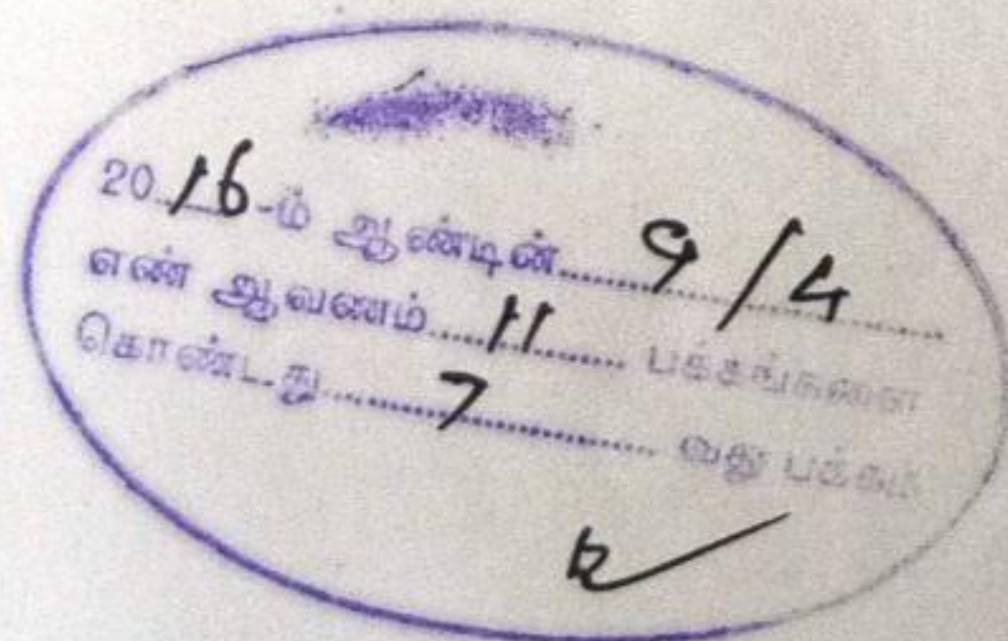 2016-ம் ஆண்டின் 914
எண் ஆவணம் 11 பக்கங்களை
கொண்டது 7 வது பக்கம்